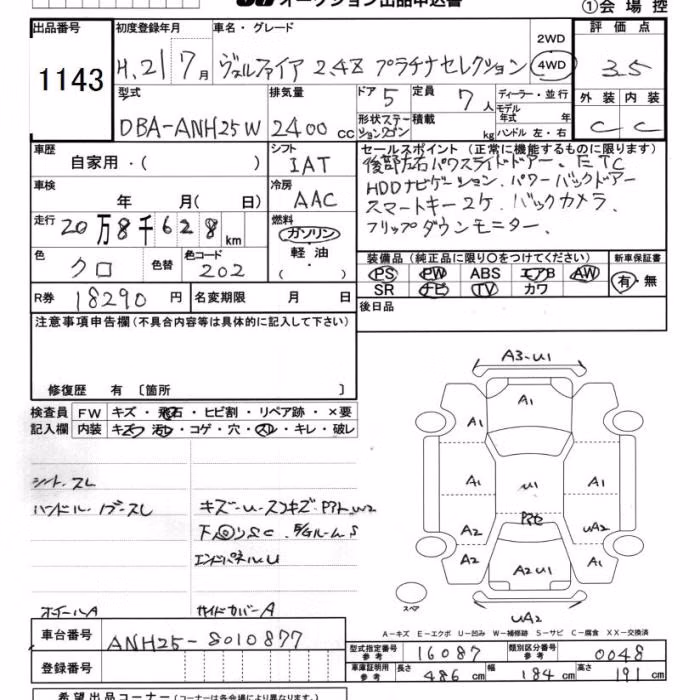 オークション出品申込書
①会場控
出品番号 初度登録年月 車名・グレード 2WD 評価点
1143 H.21 7月 ヴェルファイア 2.4Z プラチナセレクション 4WD 3.5
型式 排気量 ドア 5 定員 7人 ディーラー・並行 外装 内装
モデル年式 年
DBA-ANH25W 2400cc 形状ステーションワゴン 積載 kg ハンドル 左・右 C C
車歴 シフト セールスポイント(正常に機能するものに限ります)
自家用・( ) IAT 後部左右パワースライドドアー. ETC
車検 冷房 HDDナビゲーション. パワーバックドアー
年 月( 日) AAC スマートキー2ケ. バックカメラ.
走行 20万8千628km 燃料 フリップダウンモニター.
ガソリン
色 色替 色コード 軽油
クロ 202 ( )
装備品(純正品に限り○をつけてください) 新車保証書
PS PW ABS エアB AW 有・無
SR ナビ TV カワ
R券 18290円 名変期限 月 日
後日品
注意事項申告欄(不具合内容等は具体的に記入して下さい)
修復歴 有 〔箇所 〕
検査員 FW キズ・飛石・ヒビ割・リペア跡・×要
記入欄 内装 キズ・汚レ・コゲ・穴・スレ・キレ・破レ
シート.スレ
ハンドル.
エンドパネルU
ホイールA サイドカバーA
A3-U1
A1
A1
A1 U1 A1
A2 UA2
A2 A2U1 A1
スペア
UA2
A-キズ E-エクボ U-凹み W-補修跡 S-サビ C-腐食 XX-交換済
車台番号 ANH25-8010877
登録番号
型式指定番号 参考 16087 類別区分番号 参考 0048
車庫証明用 参考 長さ 486cm 幅 184cm 高さ 191cm
希望出品コーナー(コーナーは各会場により異なります)